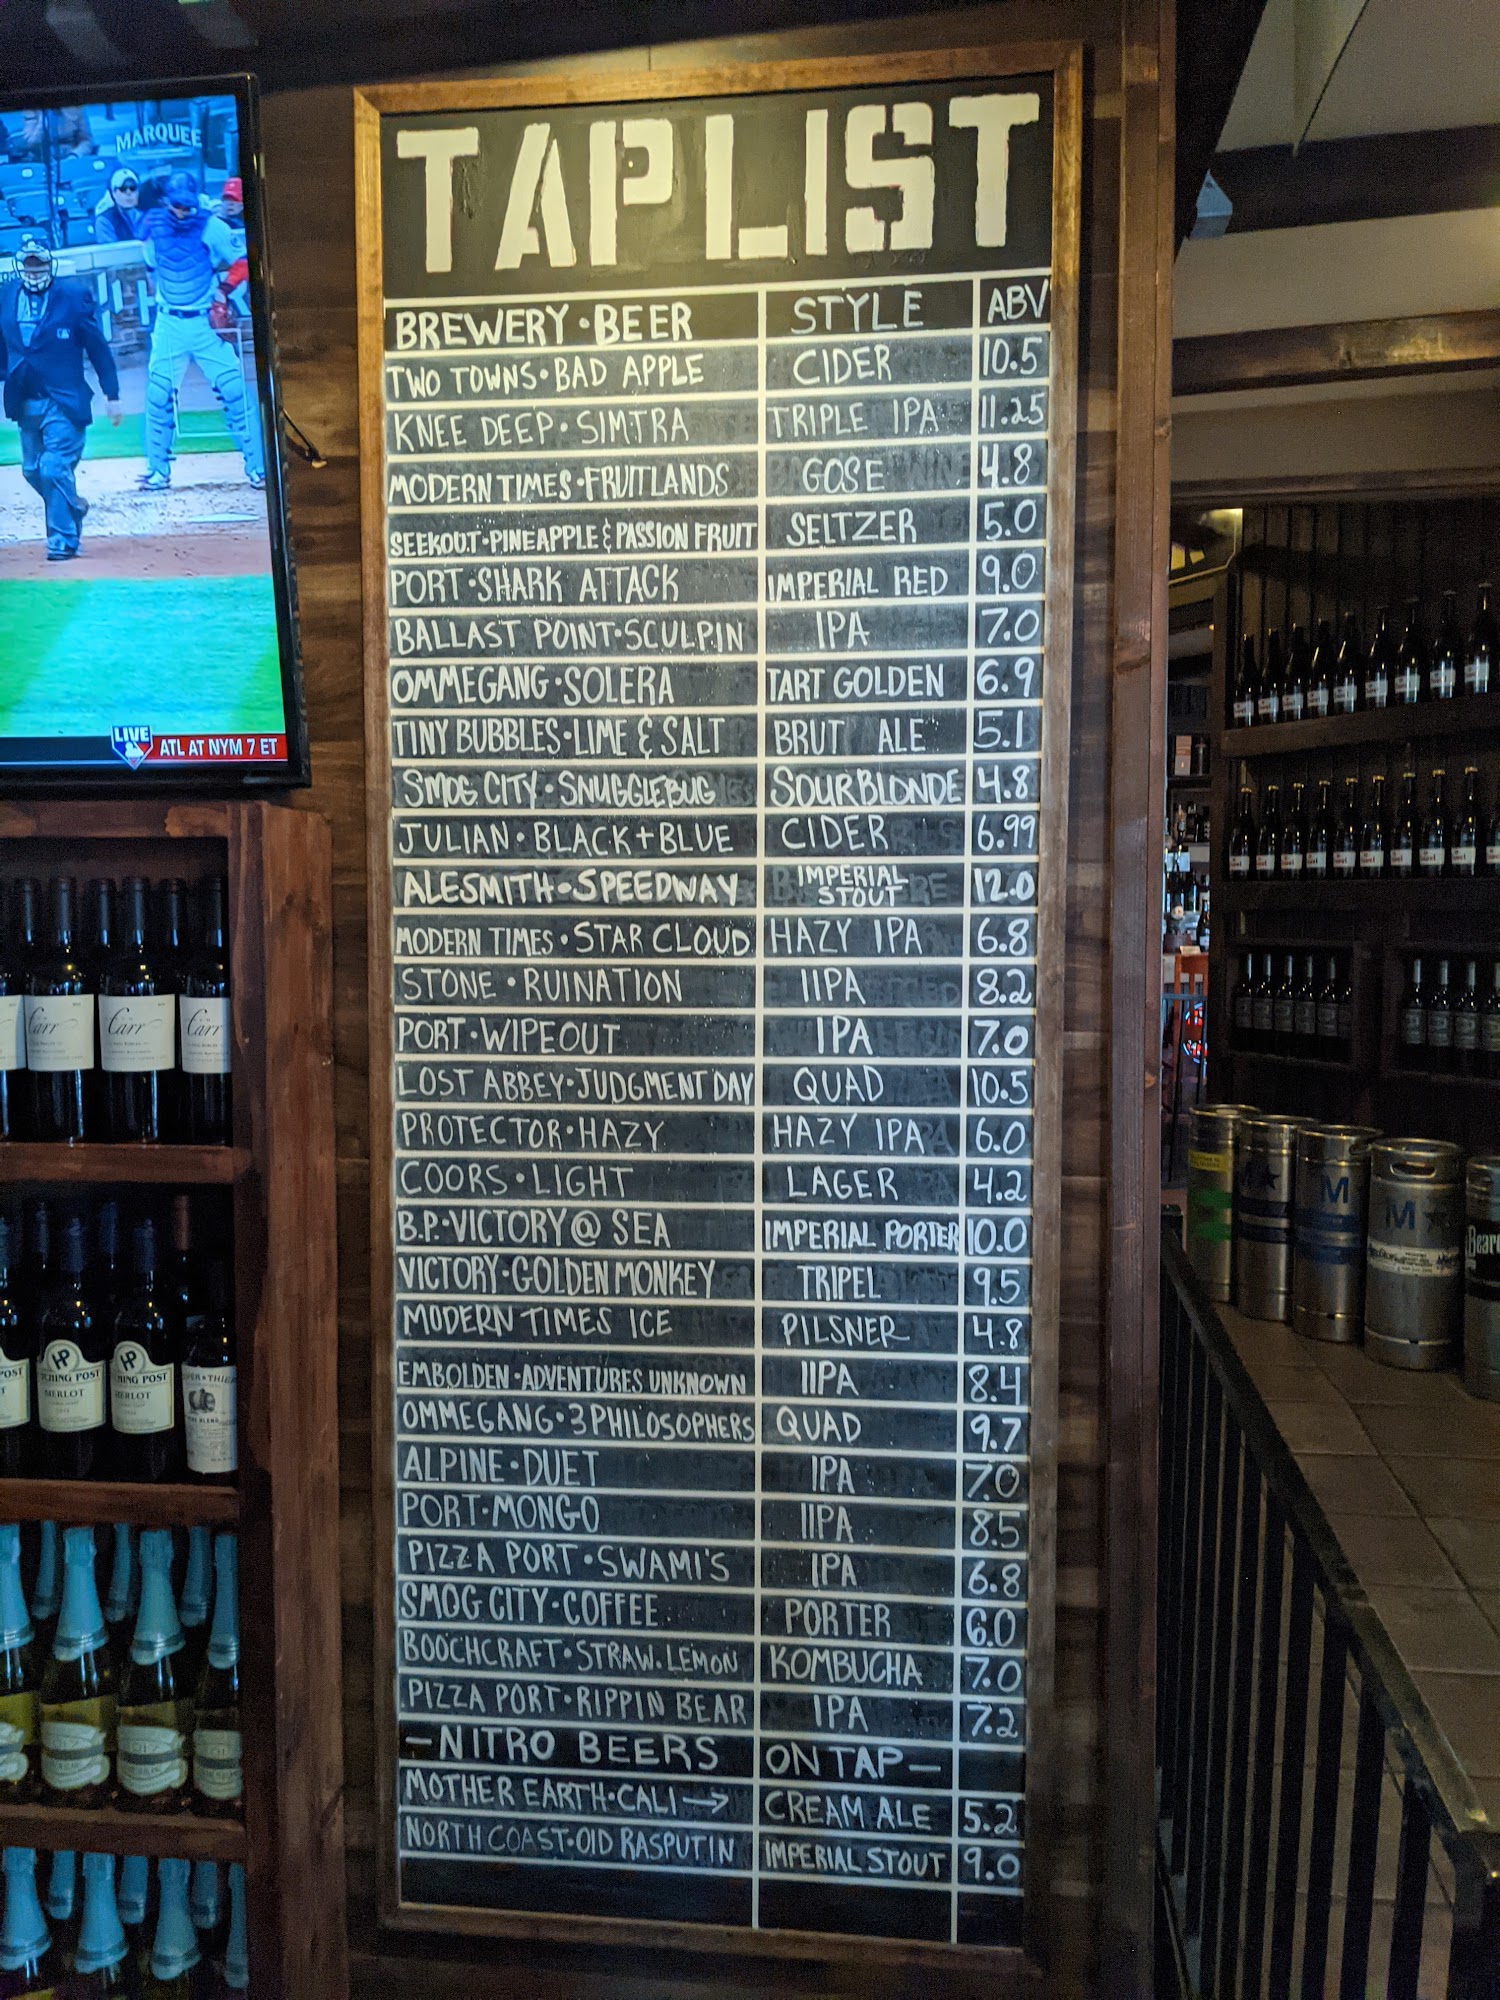 MARQUEE
LIVE
ATL AT NYM 7 ET
TAPLIST
BREWERY · BEER STYLE ABV
TWO TOWNS · BAD APPLE CIDER 10.5
KNEE DEEP · SIMTRA TRIPLE IPA 11.25
MODERN TIMES · FRUITLANDS GOSE 4.8
SEEKOUT · PINEAPPLE & PASSION FRUIT SELTZER 5.0
PORT · SHARK ATTACK IMPERIAL RED 9.0
BALLAST POINT · SCULPIN IPA 7.0
OMMEGANG · SOLERA TART GOLDEN 6.9
TINY BUBBLES · LIME & SALT BRUT ALE 5.1
SMOG CITY · SNUGGLEBUG SOUR BLONDE 4.8
JULIAN · BLACK + BLUE CIDER 6.99
ALESMITH · SPEEDWAY IMPERIAL STOUT 12.0
MODERN TIMES · STAR CLOUD HAZY IPA 6.8
STONE · RUINATION IIPA 8.2
PORT · WIPEOUT IPA 7.0
LOST ABBEY · JUDGMENT DAY QUAD 10.5
PROTECTOR · HAZY HAZY IPA 6.0
COORS · LIGHT LAGER 4.2
B.P. · VICTORY @ SEA IMPERIAL PORTER 10.0
VICTORY · GOLDEN MONKEY TRIPEL 9.5
MODERN TIMES ICE PILSNER 4.8
EMBOLDEN · ADVENTURES UNKNOWN IIPA 8.4
OMMEGANG · 3 PHILOSOPHERS QUAD 9.7
ALPINE · DUET IPA 7.0
PORT · MONGO IIPA 8.5
PIZZA PORT · SWAMI'S IPA 6.8
SMOG CITY · COFFEE PORTER 6.0
BOOCHCRAFT · STRAW. LEMON KOMBUCHA 7.0
PIZZA PORT · RIPPIN BEAR IPA 7.2
— NITRO BEERS ON TAP —
MOTHER EARTH · CALI → CREAM ALE 5.2
NORTH COAST · OLD RASPUTIN IMPERIAL STOUT 9.0
Carr Carr Carr
HP HP
MERLOT MERLOT
M M
Bear